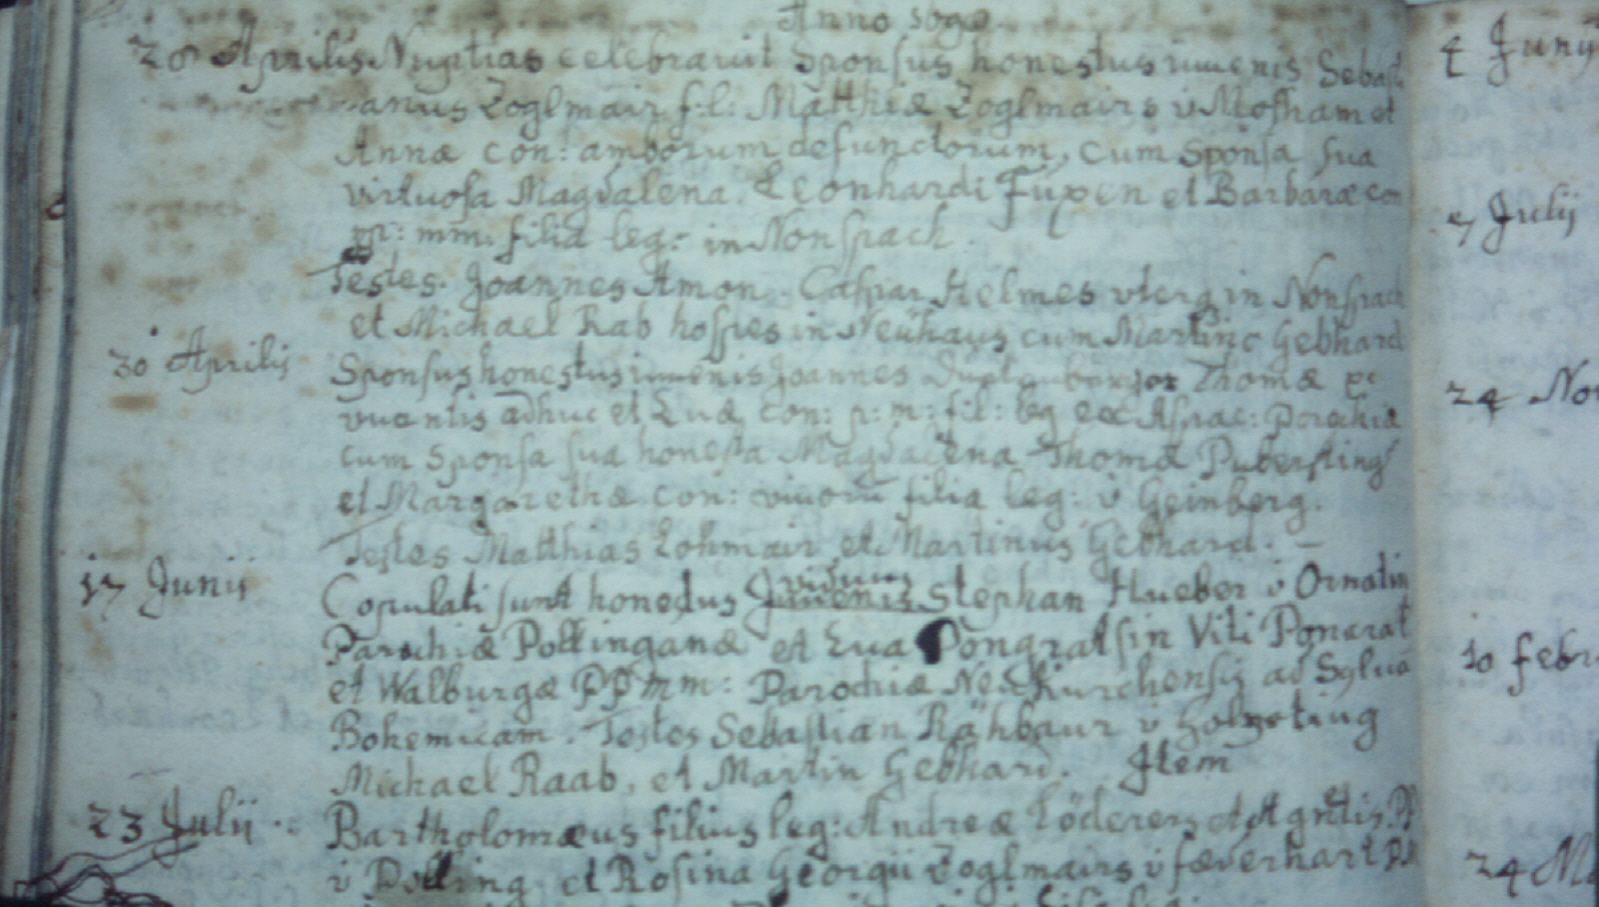 Anno
28 Aprilis Nuptias celebravit Sponsus honestus iuvenis Sebasti
anus Zoglmair f:l: Matthiæ Zoglmairs v Mosham et
Annæ con: amborum defunctorum, cum Sponsa sua
virtuosa Magdalena, Leonhardi Fuxen et Barbaræ con
pp: mm: filia leg: in Nonspach.
Testes. Joannes Amon. Caspar Helmes uterq in Nonspach
et Michael Rab hospes in Neühaus cum Martino Gebhard
30 Aprilis Sponsus honestus iuvenis Joannes Thomæ
viventis adhuc et Evæ con: p: m: fil: leg ex Aspac: Parochia
cum Sponsa sua honesta Magdalena Thomæ
et Margarethæ con: vivorū filia leg: v Geinberg.
Testes Matthias Lohmair et Martinus Gebhard.
17 Junii Copulati sunt honestus Juvenis viduus Stephan Hueber v
Parochiæ Pollinganæ et Eva Pongratsin Viti Poncrat
et Walburgæ PP mm: Parochiæ Neükürchensis ad Sylva
Bohemicam. Testes Sebastian v
Michael Raab, et Martin Gebhard. Item
23 Julii Bartholomæus filius leg: Andreæ et Agnetis PP
v Polling et Rosina Georgii Zoglmairs v
4 Junij
7 Julij
24 Nov
10 febr
24 Ma